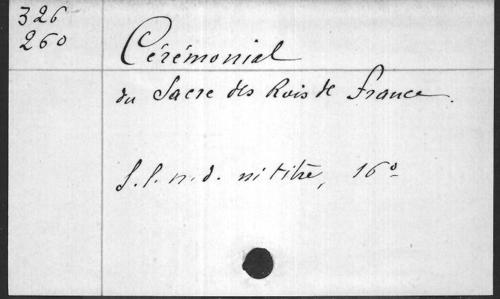 326
260
Cérémonial
du Sacre des Rois de France.
S. l. n. d. ni titre, 16º